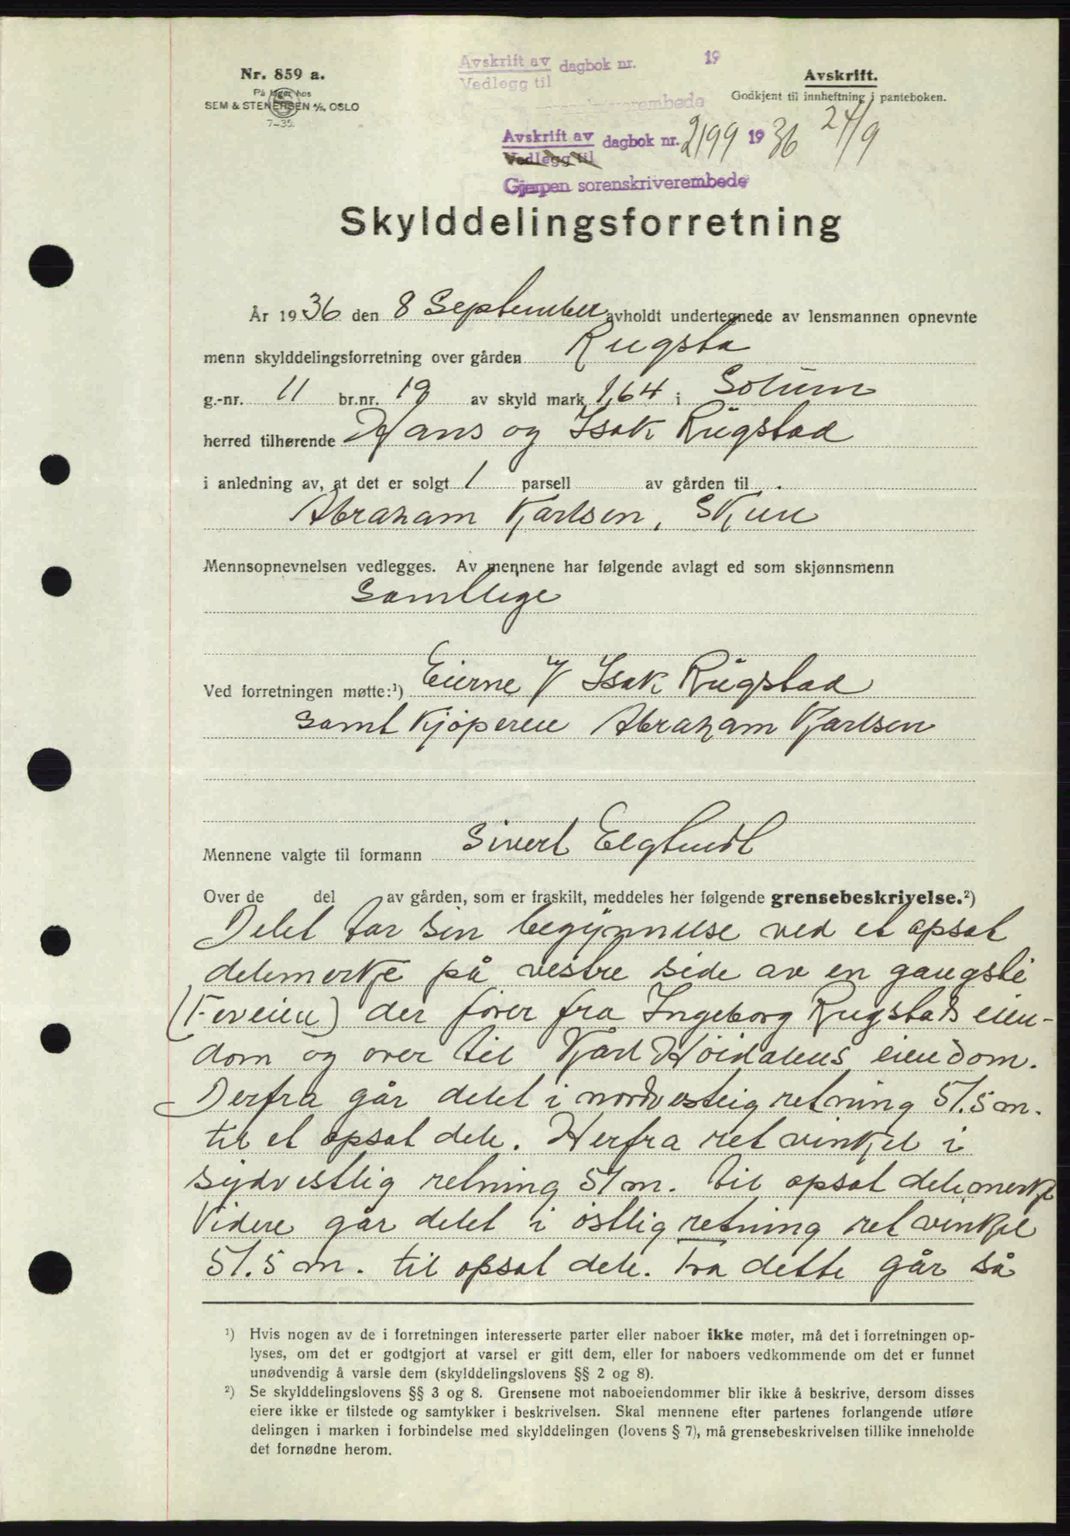 Nr. 859 a.
På lager hos
SEM & STENERSEN A/S, OSLO
7-35.
Avskrift av dagbok nr. 19
Vedlegg til
sorenskriverembede
Avskrift.
Godkjent til innheftning i panteboken.
Avskrift av dagbok nr. 2199 1936 24/9
Vedlegg til
Gjerpen sorenskriverembede
Skylddelingsforretning
År 1936 den 8 September avholdt undertegnede av lensmannen opnevnte
menn skylddelingsforretning over gården Rugsta
g.-nr. 11 br.nr. 19 av skyld mark 1,64 i Solum
herred tilhørende Hans og Isak Rugstad
i anledning av, at det er solgt 1 parsell av gården til
Abraham Karlsen, Skien
Mennsopnevnelsen vedlegges. Av mennene har følgende avlagt ed som skjønnsmenn
Samtlige
Ved forretningen møtte:¹) Eierne v/ Isak Rugstad
samt Kjøperen Abraham Karlsen
Mennene valgte til formann Sivert Elglund
Over de del av gården, som er fraskilt, meddeles her følgende grensebeskrivelse.²)
Delet tar sin begynnelse ved et opsat
delemerke på vestre side av en gangsti
(Feveien) der fører fra Ingeborg Rugstads eien-
dom og over til Karl Høidalens eiendom.
Derfra går delet i nordvestlig retning 51.5 m.
til et opsat dele. Herfra ret vinkel i
sydvestlig retning 51 m. til opsat delemerke
Videre går delet i østlig retning ret vinkel
51.5 m. til opsat dele. Fra dette går så
¹) Hvis nogen av de i forretningen interesserte parter eller naboer ikke møter, må det i forretningen op-
lyses, om det er godtgjort at varsel er gitt dem, eller for naboers vedkommende om det er funnet
unødvendig å varsle dem (skylddelingslovens §§ 2 og 8).
²) Se skylddelingslovens §§ 3 og 8. Grensene mot naboeiendommer blir ikke å beskrive, dersom disses
eiere ikke er tilstede og samtykker i beskrivelsen. Skal mennene efter partenes forlangende utføre
delingen i marken i forbindelse med skylddelingen (lovens § 7), må grensebeskrivelsen tillike inneholde
det fornødne herom.